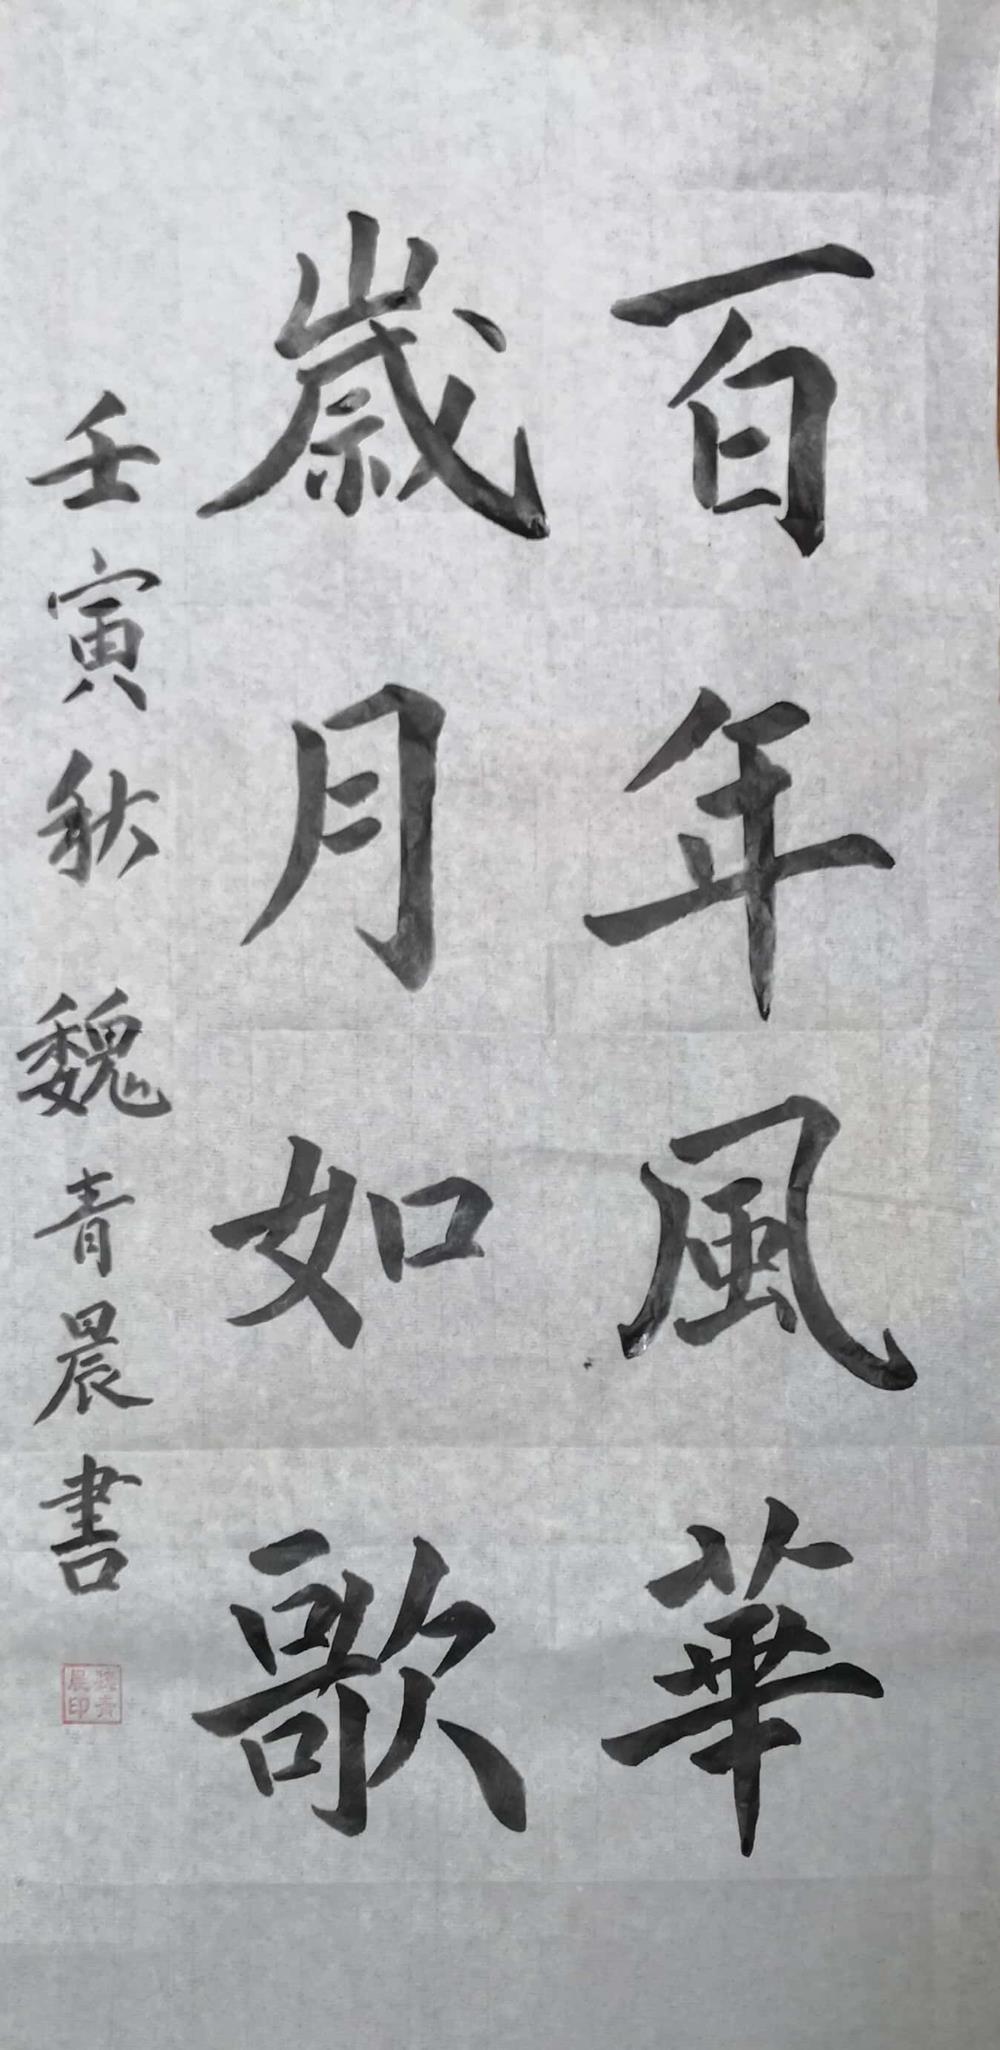 百年風華
歲月如歌
壬寅秋 魏青晨書
魏青晨印